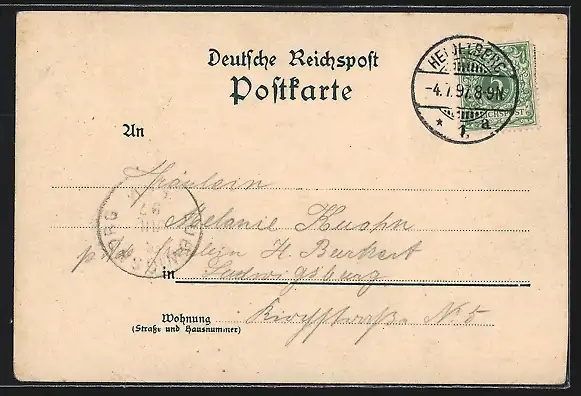 Deutsche Reichspost
Postkarte
HEIDELBERG
-4.7.97.8-9N.
* 1. a
An
Fräulein
Melanie Kuohn
H. Burkert
in Ludwigsburg
Wohnung
(Straße und Hausnummer)
Kirchstraße N. 5